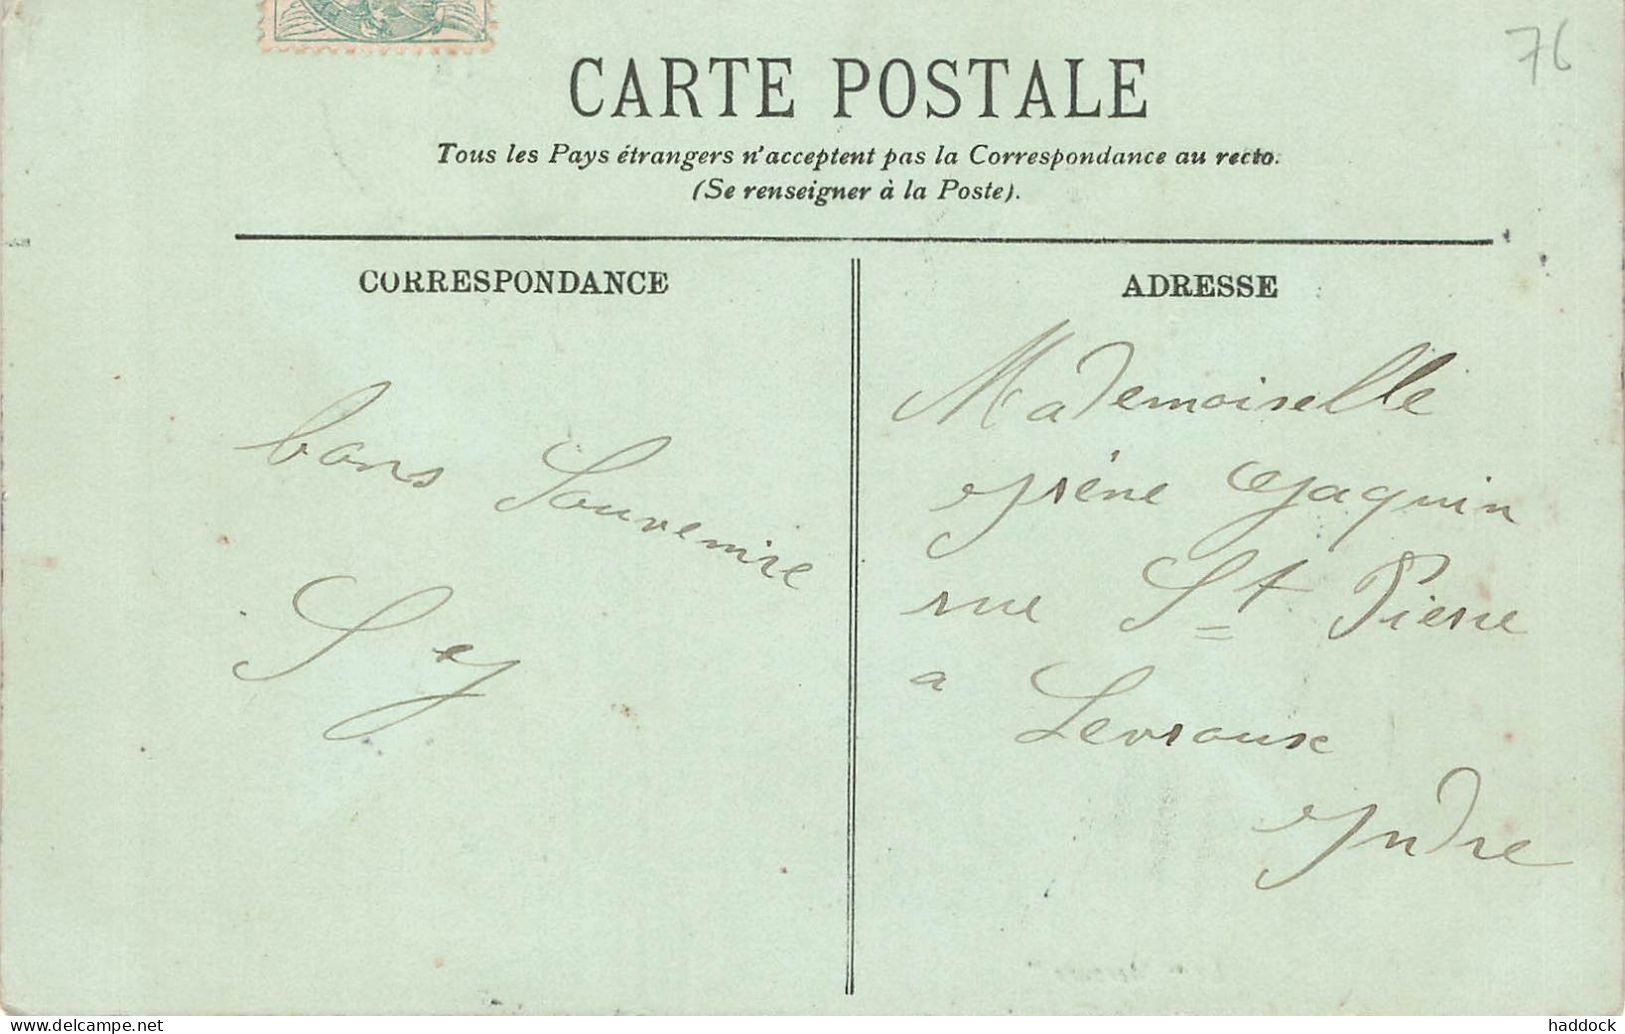 76
CARTE POSTALE
Tous les Pays étrangers n'acceptent pas la Correspondance au recto.
(Se renseigner à la Poste).
CORRESPONDANCE
bons Souvenire
ADRESSE
Mademoiselle
Irène Jaquin
rue St Pierre
a Levroux
Indre
www.delcampe.net
haddock